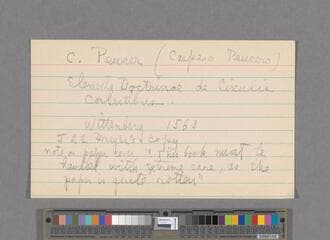 C. Peucer (Caspero Peucero)
Elementa Doctrinae de Circulis
Coelestibus.
Wittenberg 1563
copy
note on paper cover "This book must be
handled with extreme care, as the
paper is quite rotten"